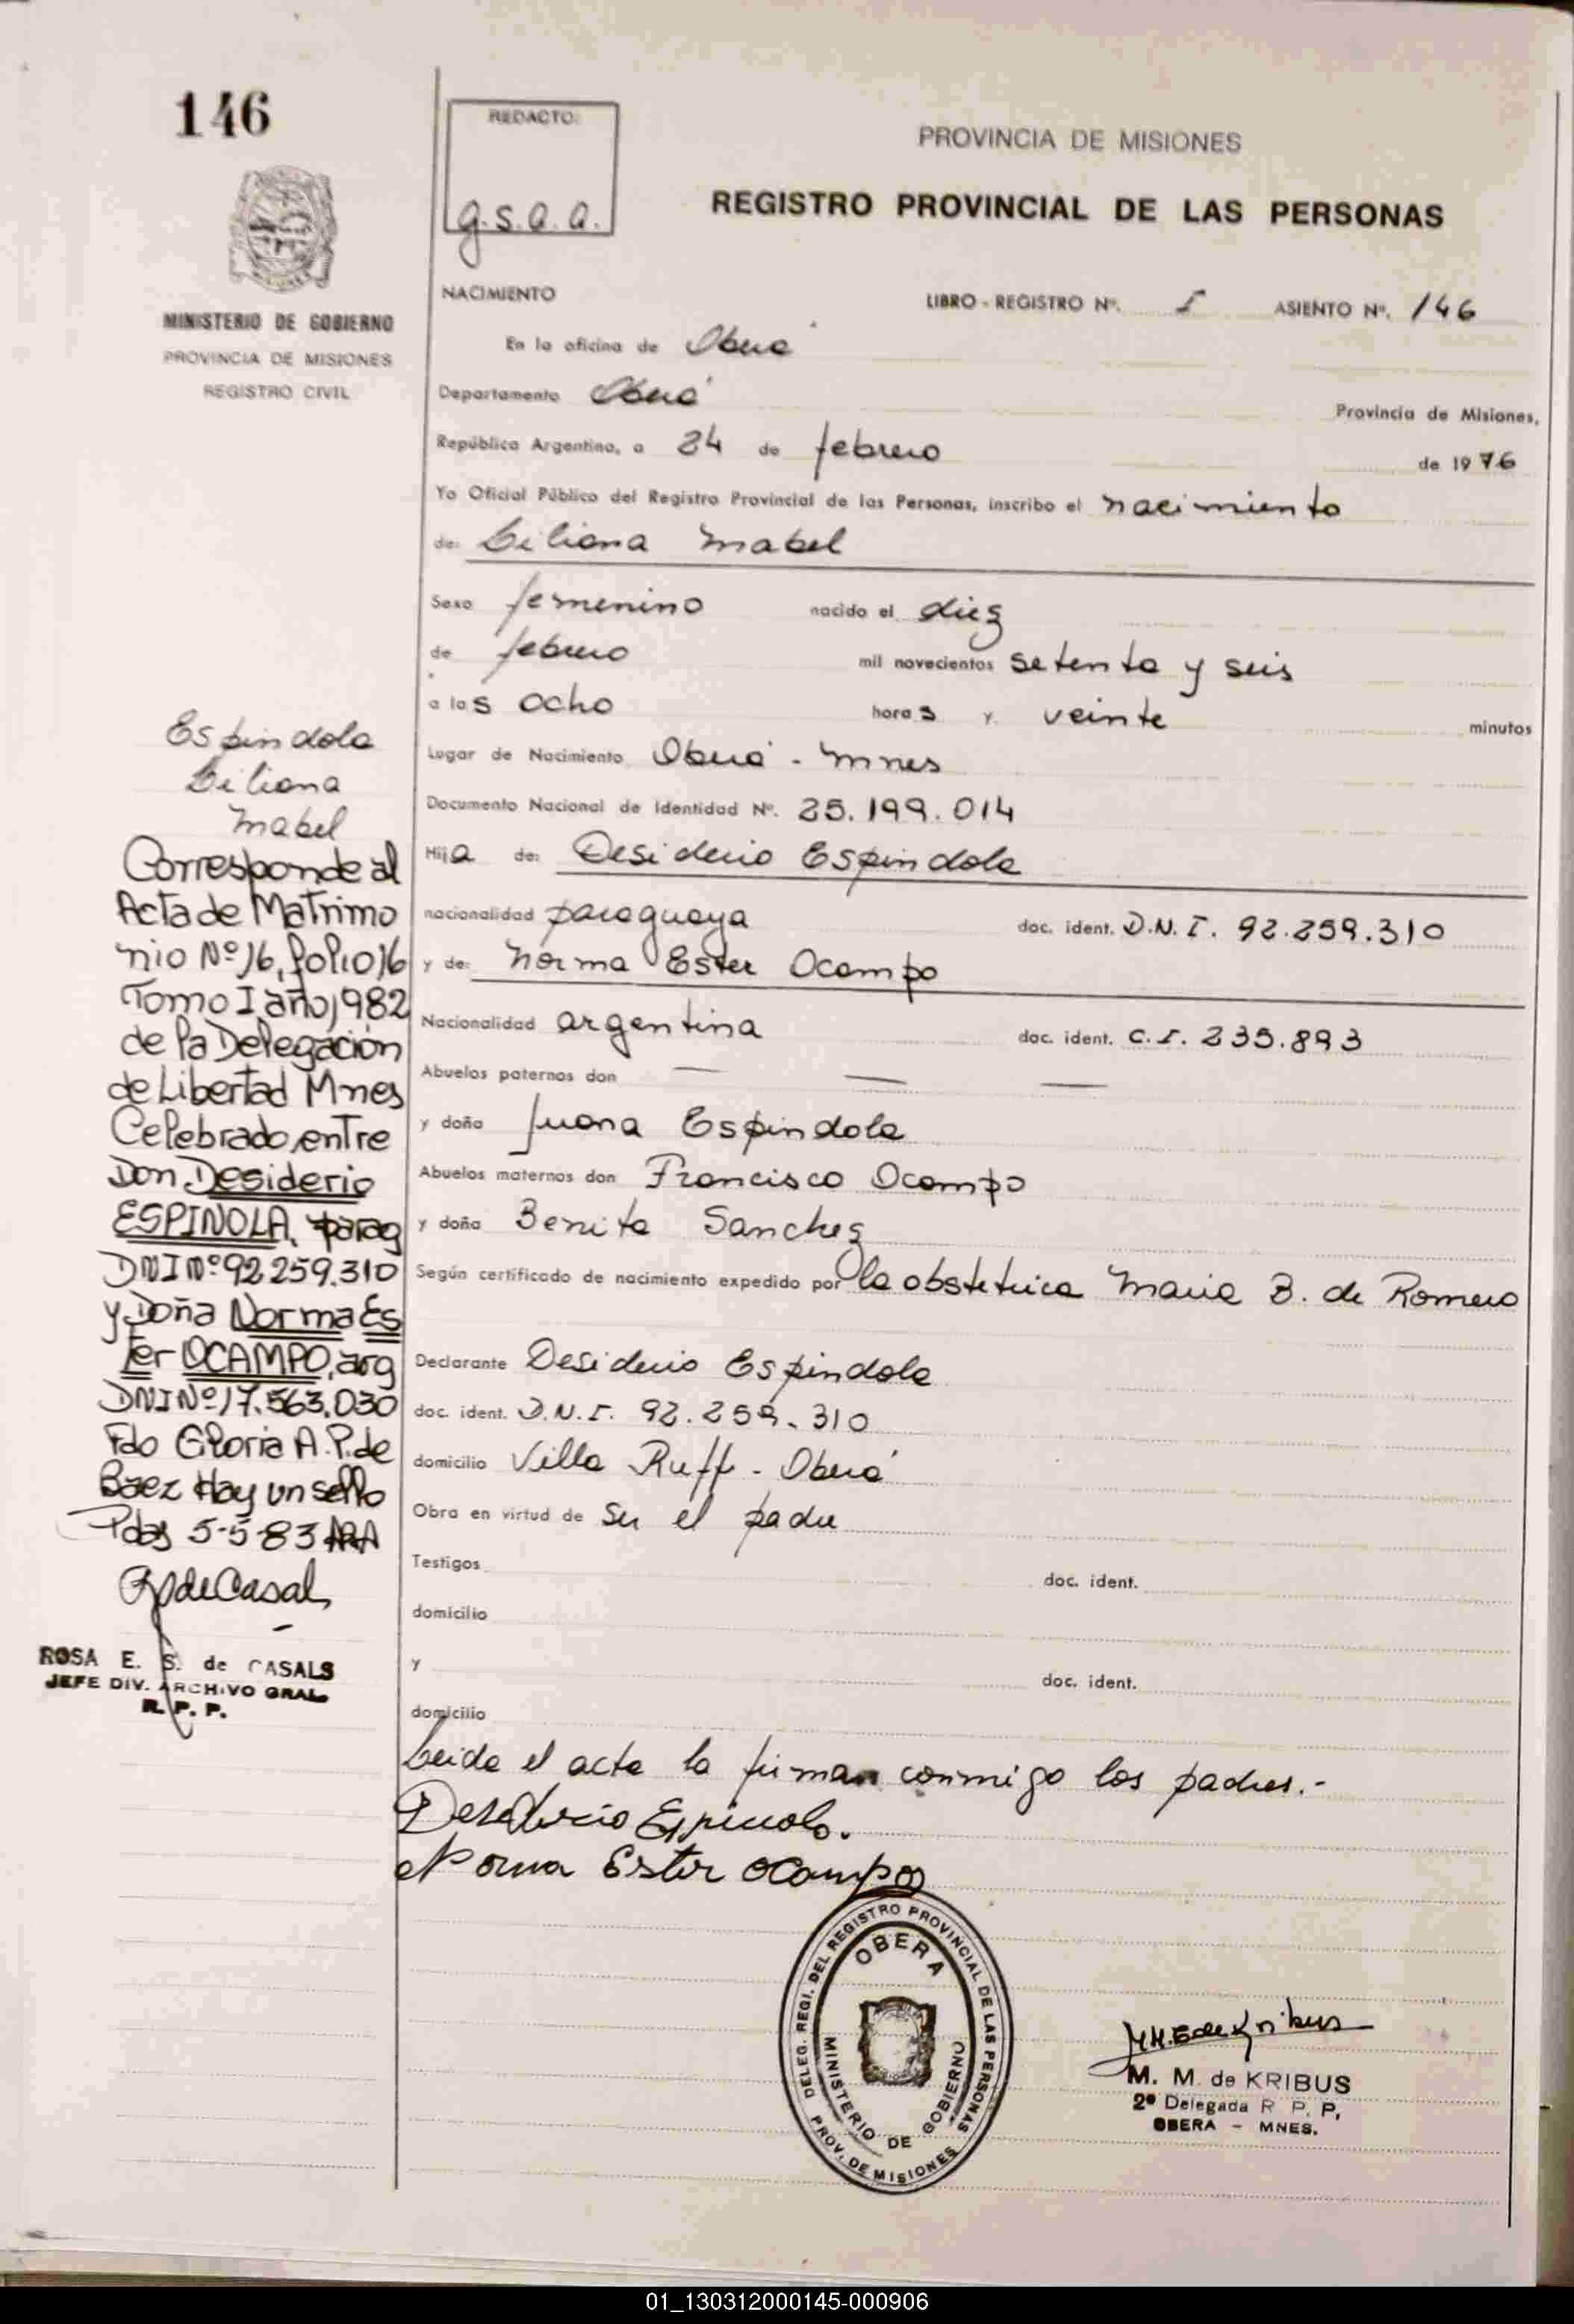 146
REDACTO:
g.s.a.a.
PROVINCIA DE MISIONES
REGISTRO PROVINCIAL DE LAS PERSONAS
MINISTERIO DE GOBIERNO
PROVINCIA DE MISIONES
REGISTRO CIVIL
NACIMIENTO
LIBRO - REGISTRO Nº. I ASIENTO Nº. 146
En la oficina de Oberá
Departamento Oberá
Provincia de Misiones,
República Argentina, a 24 de febrero de 1976
Yo Oficial Público del Registro Provincial de las Personas, inscribo el nacimiento
de: Liliana Mabel
Sexo femenino nacido el diez
de febrero mil novecientos setenta y seis
a las ocho horas y veinte minutos
Lugar de Nacimiento Oberá - Mnes
Documento Nacional de Identidad Nº. 25.199.014
Hija de: Desiderio Espindola
nacionalidad paraguaya doc. ident. D.N.I. 92.259.310
y de: Norma Ester Ocampo
Nacionalidad argentina doc. ident. C.I. 235.893
Abuelos paternos don — — —
y doña Juana Espindola
Abuelos maternos don Francisco Ocampo
y doña Benita Sanchez
Según certificado de nacimiento expedido por la obstetrica Maria B. de Romero
Declarante Desiderio Espindola
doc. ident. D.N.I. 92.259.310
domicilio Villa Ruff - Oberá
Obra en virtud de ser el padre
Testigos doc. ident.
domicilio
y doc. ident.
domicilio
Leida el acta la firman conmigo los padres.-
Desiderio Espinola.
Norma Ester Ocampo
Espindola
Liliana
Mabel
Corresponde al
Acta de Matrimo
nio Nº 16, folio 16
Tomo I año 1982
de la Delegación
de Libertad Mnes
Celebrado, entre
Don Desiderio
ESPINOLA, parag
DNI Nº 92 259.310
y Doña Norma Es
ter OCAMPO, arg
DNI Nº 17.563.030
Fdo Gloria A. P. de
Baez Hay un sello
Pdas 5-5-83
ROSA E. S. de CASALS
JEFE DIV. ARCHIVO GRAL.
R. P. P.
DELEG. REGI. DEL REGISTRO PROVINCIAL DE LAS PERSONAS
OBERA
MINISTERIO DE GOBIERNO
PROV. DE MISIONES
M. M. de KRIBUS
2ª Delegada R. P. P.
OBERA - MNES.
01_130312000145-000906